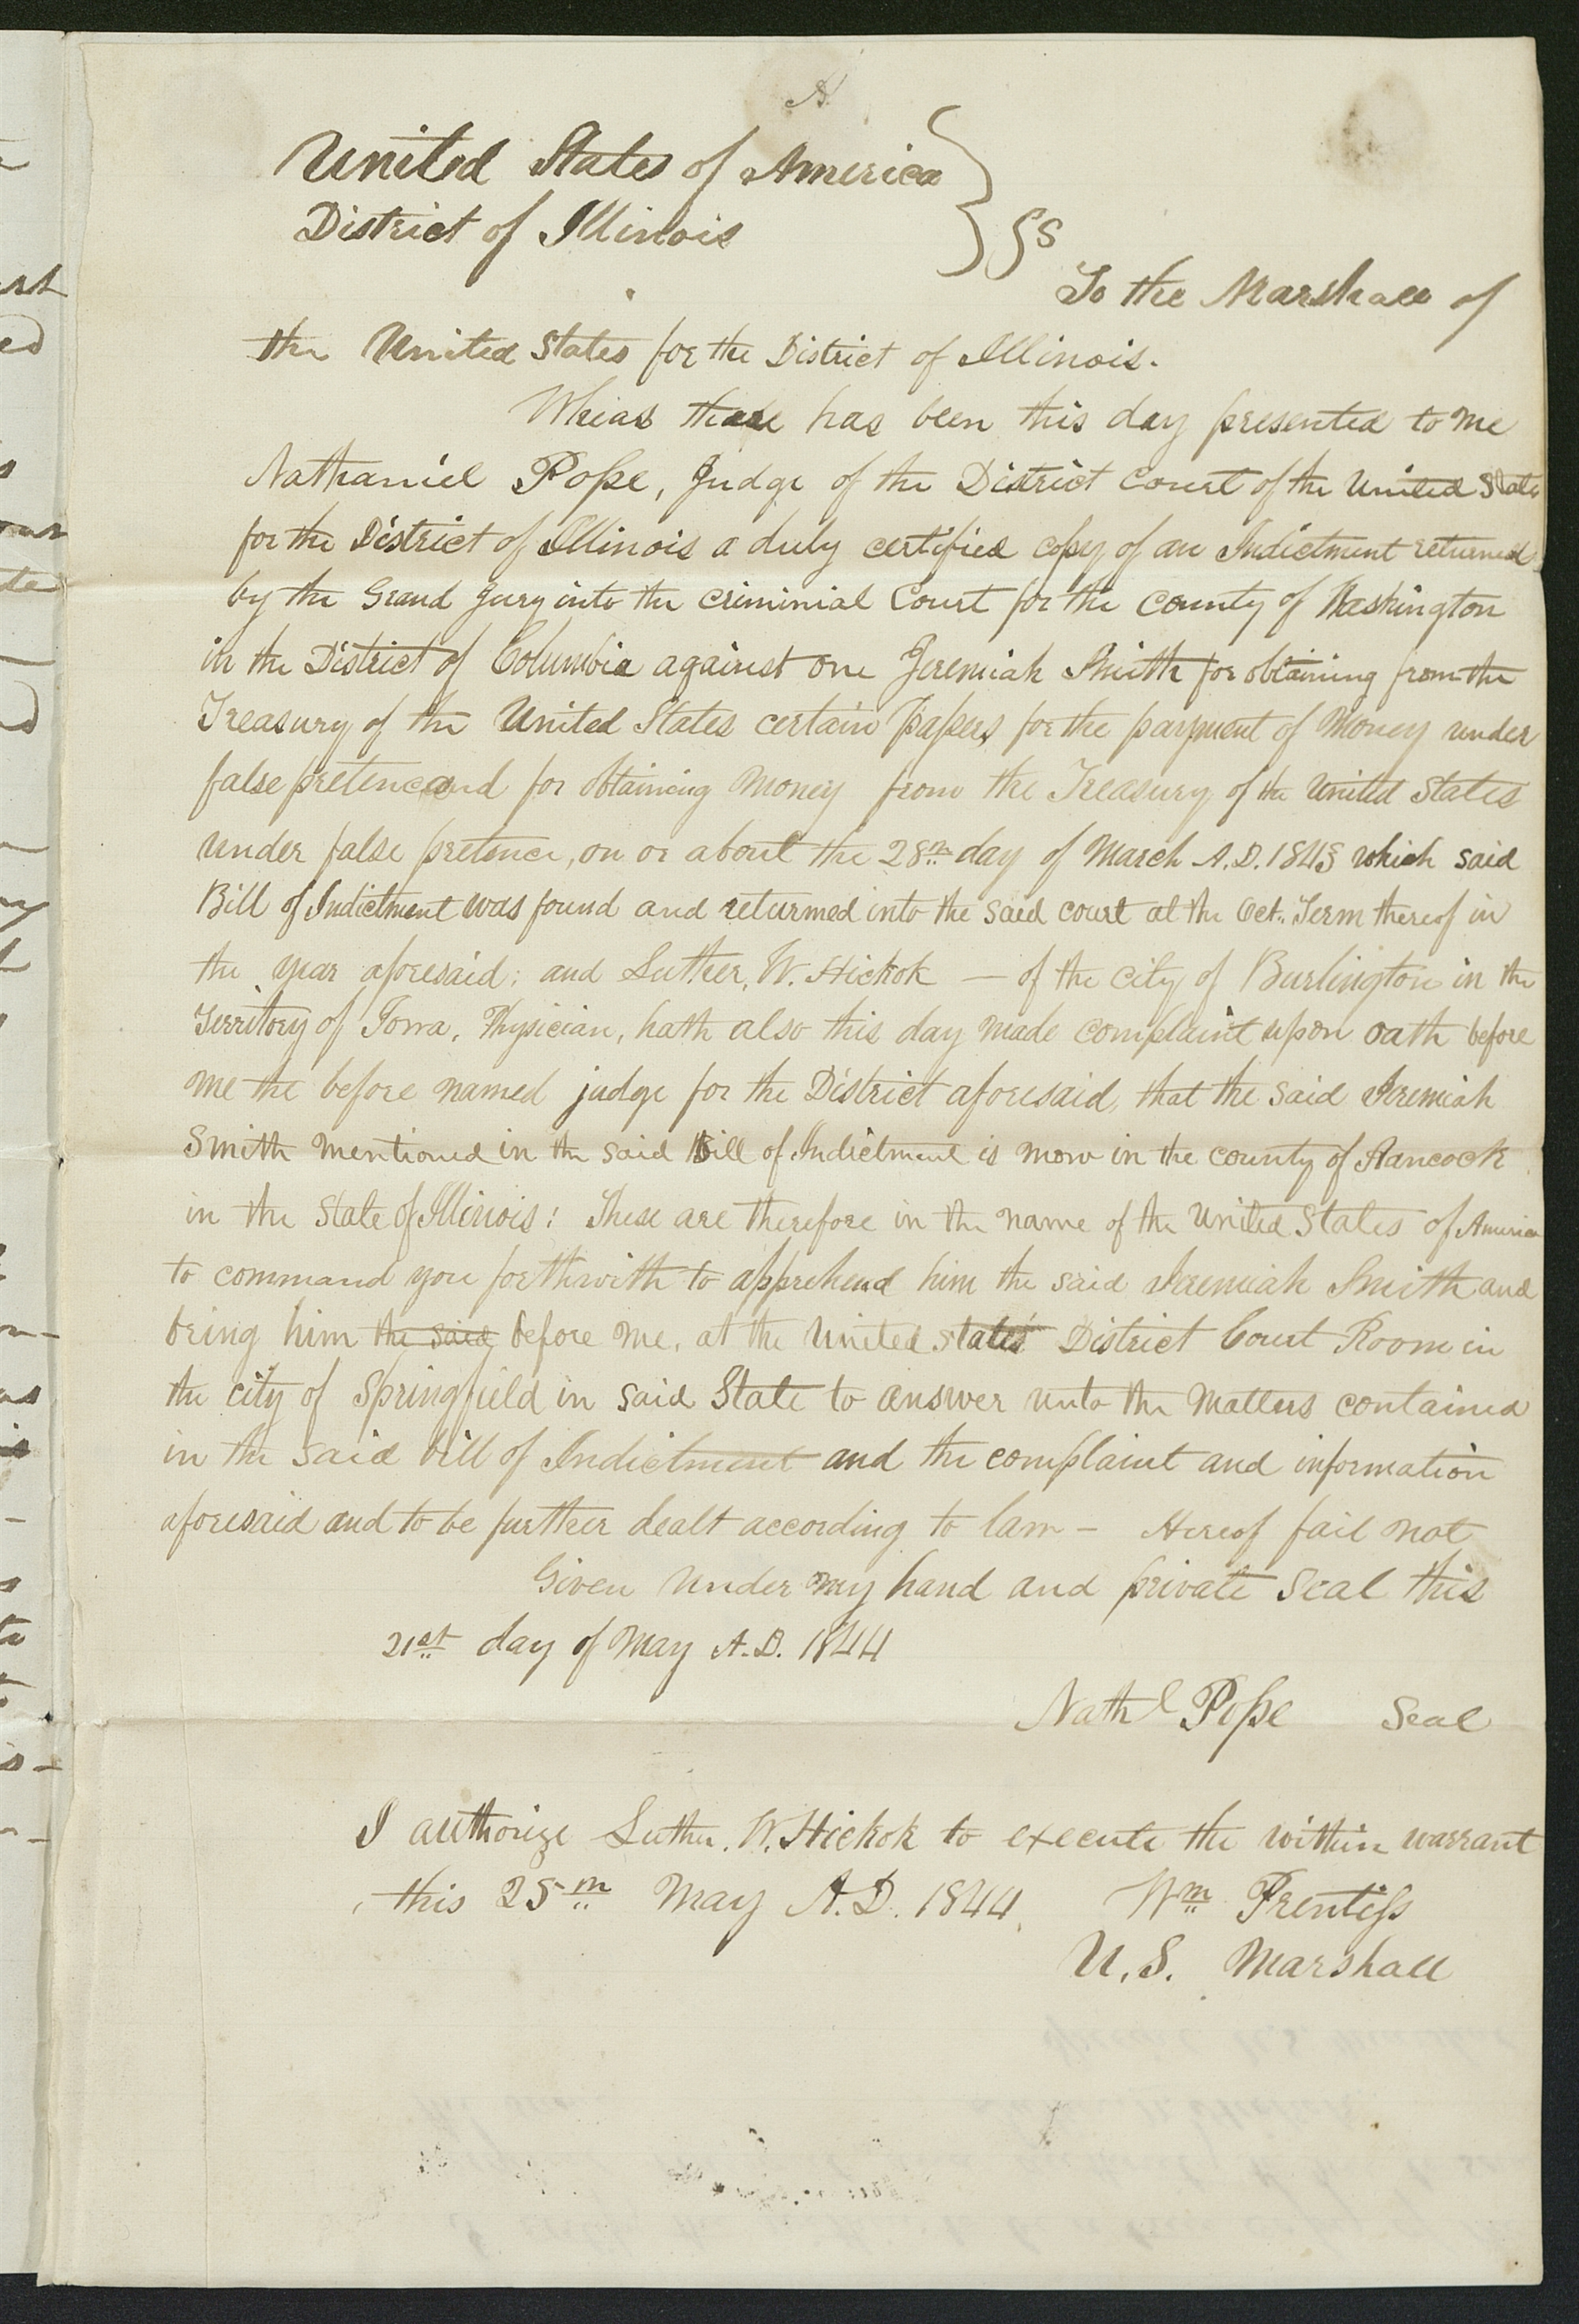 A
United States of America
District of Illinois } ss
To the Marshall of
the United States for the District of Illinois.
Wheias there has been this day presented to me
Nathaniel Pope, Judge of the District Court of the United States
for the District of Illinois a duly certified copy of an Indictment returned
by the Grand Jury into the criminial Court for the county of Washington
in the District of Columbia against one Jeremiah Smith for obtaining from the
Treasury of the United States certain papers for the payment of Money under
false pretence and for obtaining Money from the Treasury of the United States
under false pretence, on or about the 28th day of March A.D. 1843 which said
Bill of Indictment was found and returned into the said court at the Oct. Term thereof in
the year aforesaid; and Luther, W. Hickok — of the city of Burlington in the
Territory of Iowa, Physician, hath also this day made complaint upon oath before
me the before named judge for the District aforesaid, that the said Jeremiah
Smith mentioned in the said Bill of Indictment is now in the county of Hancock
in the State of Illinois: These are therefore in the name of the United States of America
to command you forthwith to apprehend him the said Jeremiah Smith and
bring him the said before me, at the United States District Court Room in
the city of Springfield in said State to answer unto the Matters contained
in the said bill of Indictment and the complaint and information
aforesaid and to be further dealt according to law – Hereof fail not
Given under my hand and private Seal this
21st day of May A.D. 1844
Nathl Pope Seal
I authorize Luther. W. Hickok to execute the within warrant
this 25th May A.D. 1844. Wm Prentiss
U.S. Marshall